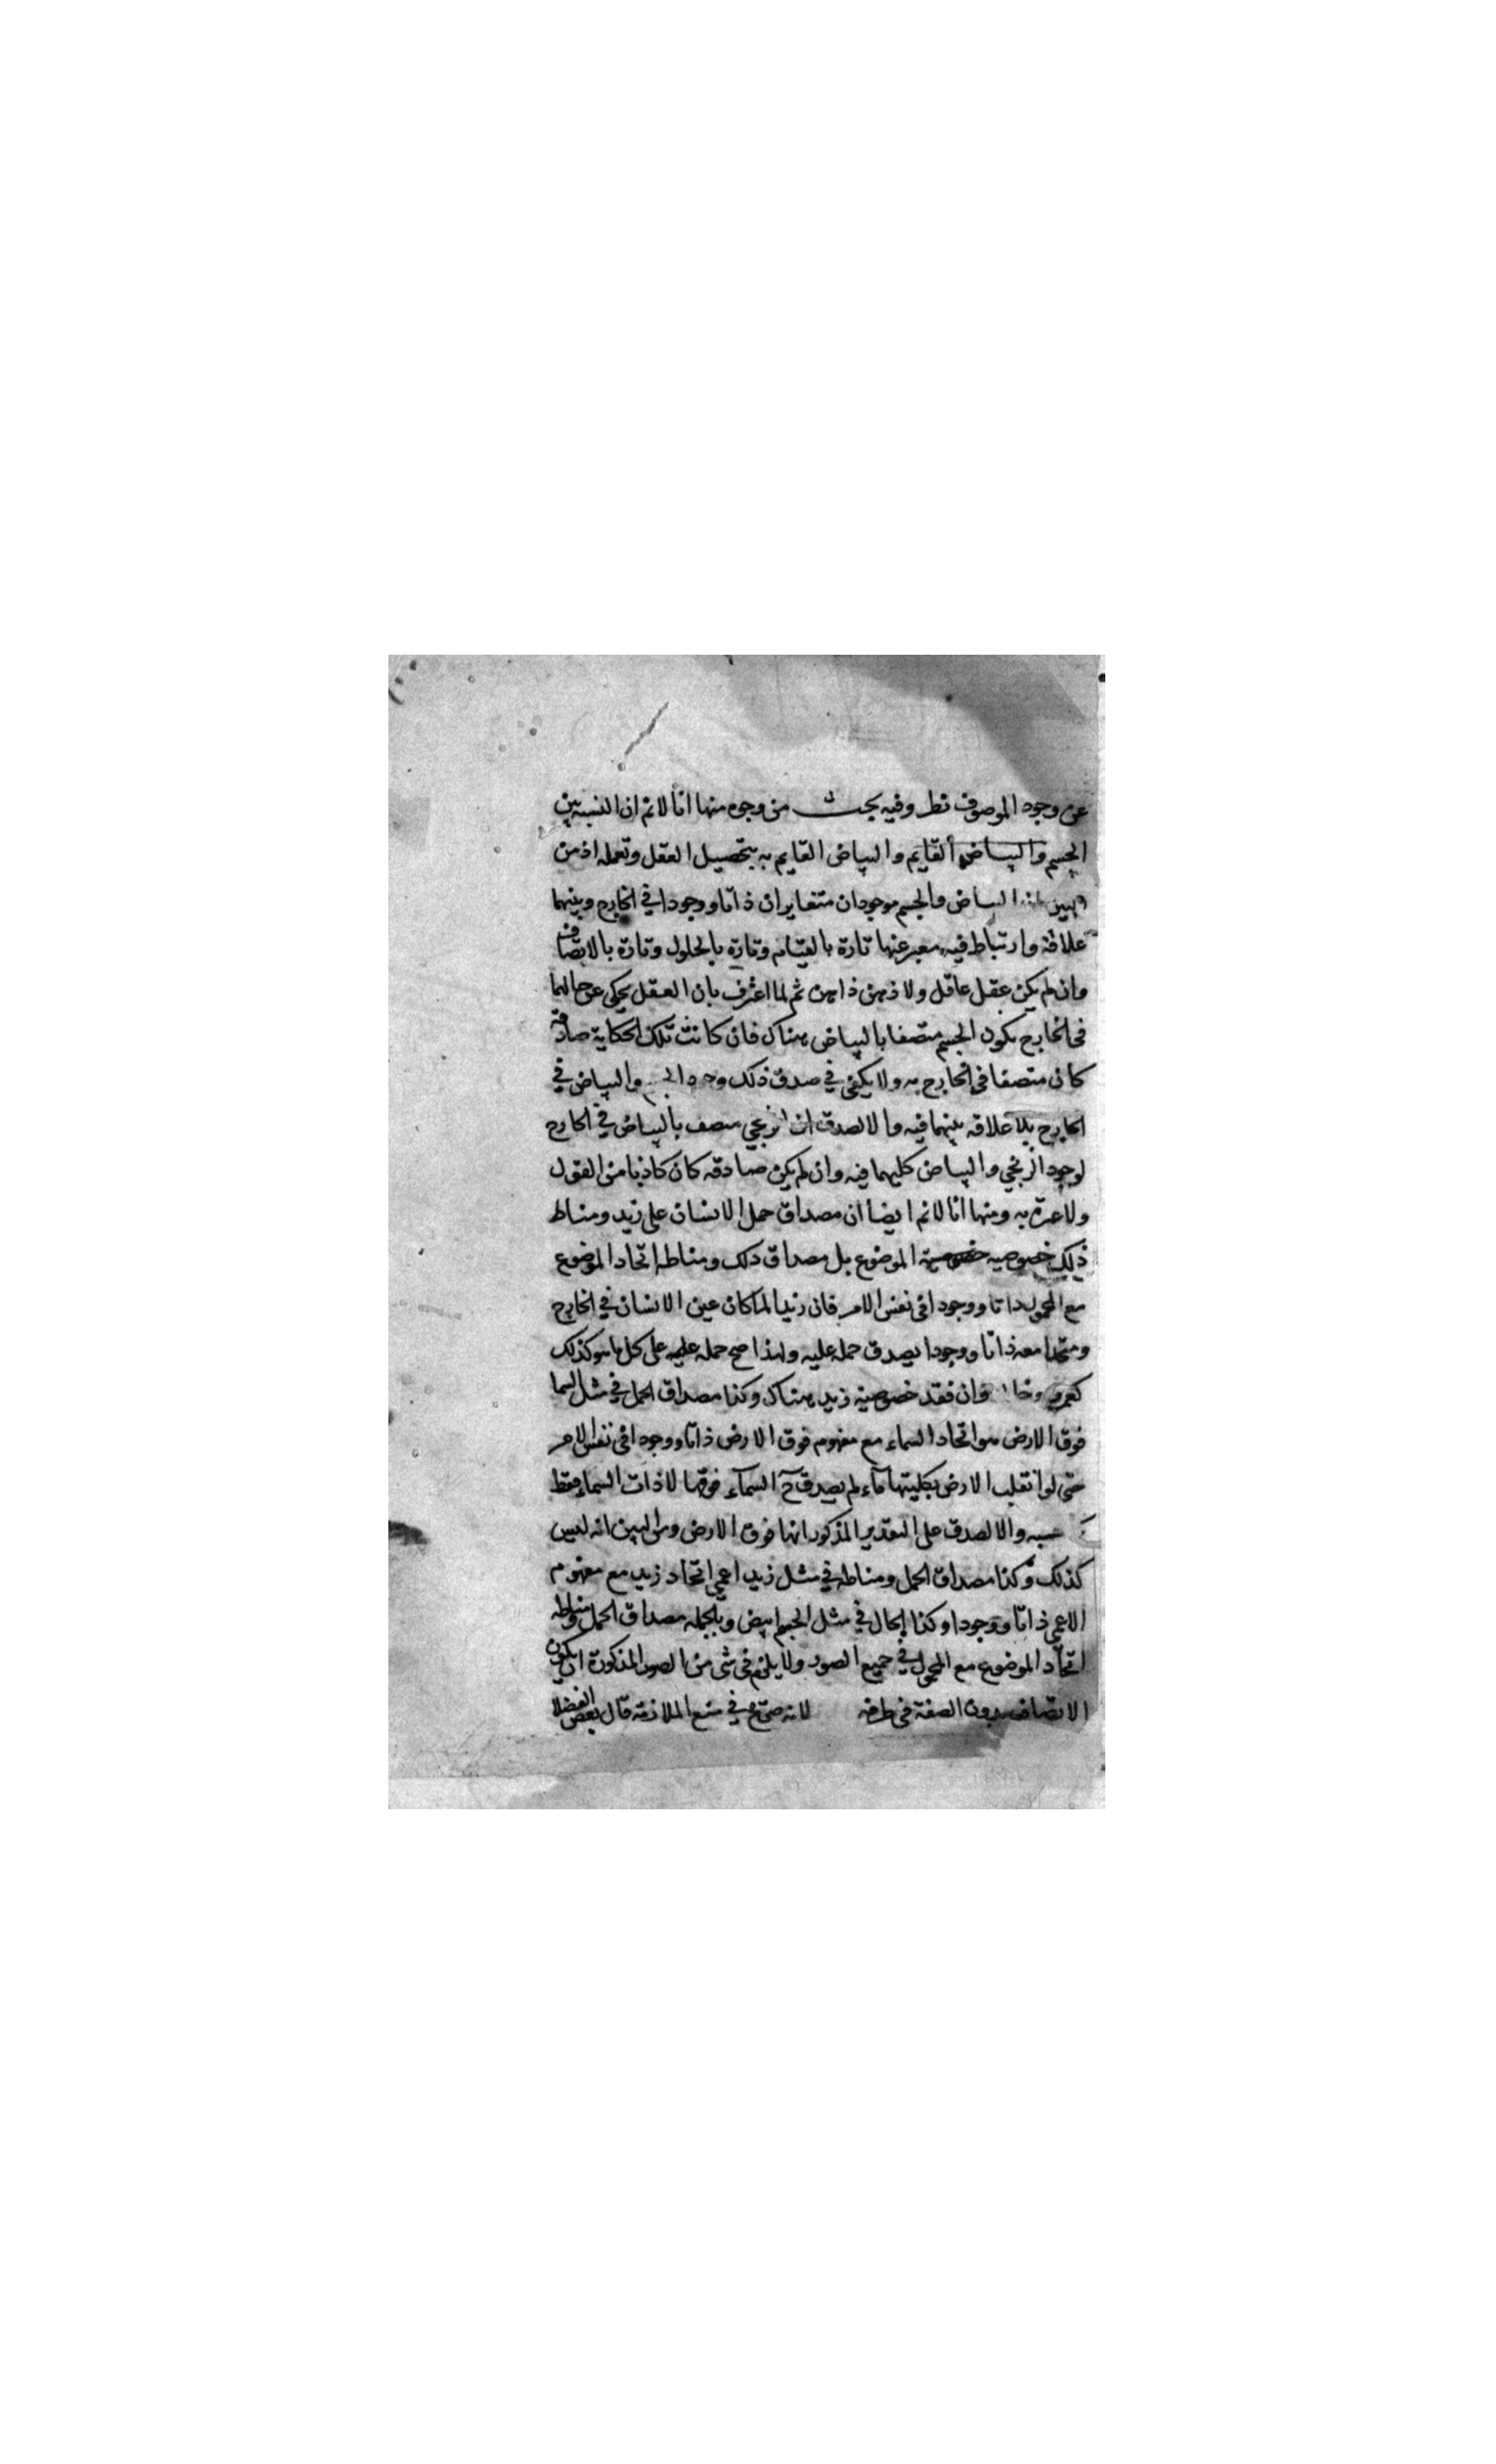 عن وجود الموصوف نظر وفيه بحث من وجوه منها انا لانم ان النسبة بين
الجسم والبياض القايم والبياض القايم به بتحصيل العقل وتعمله اذ من
البين البياض والجسم موجودان متغايران ذاتا ووجودا في الخارج وبينهما
علاقة وارتباط فيه معبر عنها تارة بالقيام وتارة بالحلول وتارة بالاتصاف
وان لم يكن عقل عاقل ولا ذهن ذاهن ثم لما اعترف بان العقل يحكي عن حالهما
في الخارج بكون الجسم متصفا بالبياض هناك فان كانت تلك الحكاية صادقة
كان متصفا في الخارج به ولا يكفي في صدق ذلك وجود والبياض في
الخارج بلا علاقه بينهما فيه والا لصدق ان الزنجي متصف بالبياض في الخارج
لوجود الزنجي والبياض كليهما فيه وان لم يكن صادقه كان كاذبا من القول
ولا عبرة به ومنها انا لانم ايضا ان مصداق حمل الانسان على زيد ومناط
ذلك خصوصيه خصوصية الموضوع بل مصداق ذلك ومناطه اتحاد الموضوع
مع المحمول ذاتا ووجودا في نفس الامر فان زيدا لما كان عين الانسان في الخارج
ومتحدا معه ذاتا ووجودا يصدق حمله عليه ولهذا صح حمله عليه على كل ما هو كذلك
كعمرو وان فقد خصوصية زيد هناك وكذا مصداق الحمل في مثل السما
فوق الارض هو اتحاد السماء مع مفهوم فوق الارض ذاتا ووجودا في نفس الامر
حتى لو انقلب الارض بكليتها ماء لم يصدق ح السماء فوقها لا ذات السماء فقط
والا لصدق على التقدير المذكور انها فوق الارض ومن البين انه ليس
كذلك وكذا مصداق الحمل ومناطه في مثل زيد اعمي اتحاد زيد مع مفهوم
الاعمي ذاتا ووجودا وكذا الحال في مثل الجسم ابيض وبالجمله مصداق الحمل ومناطه
اتحاد الموضوع مع المحمول في جميع الصور ولا يلزم في شي من الصور المذكورة ان يكون
الاتصاف بدون الصفة في ظرفه لانه في منع الملازمة قال بعض الفضلا